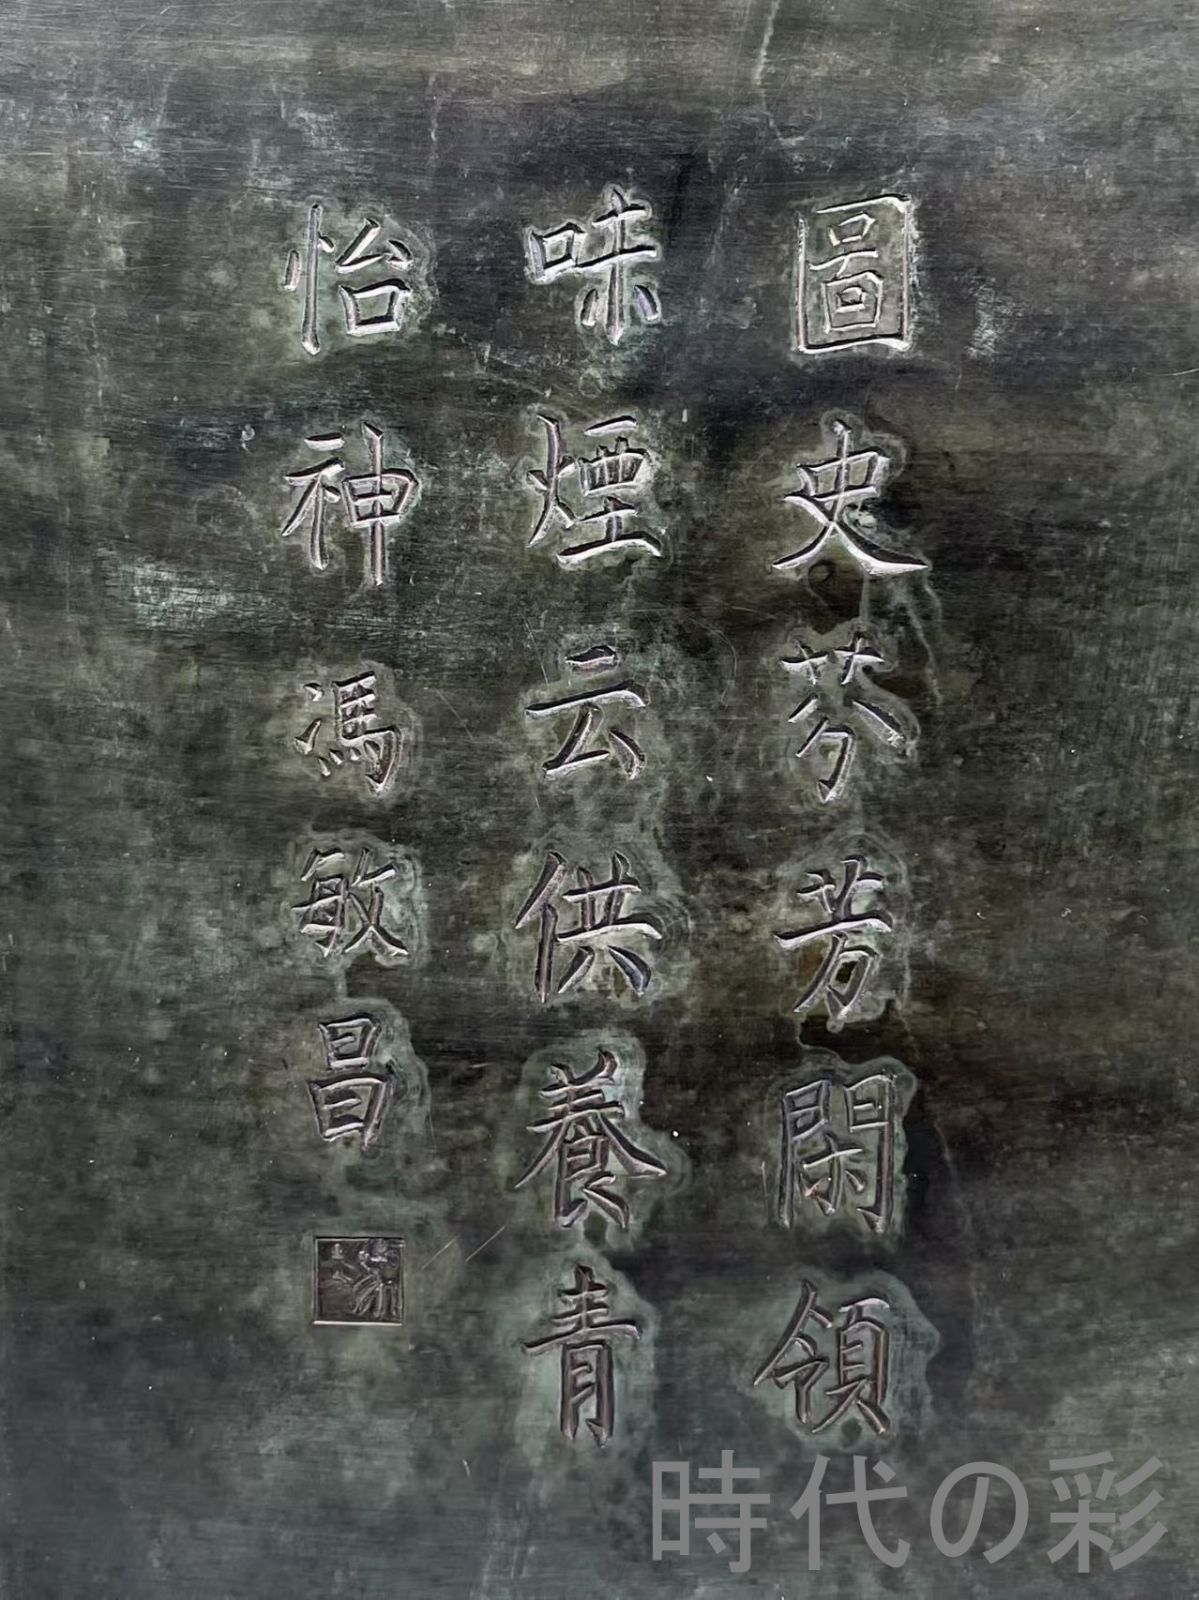 圖史芬芳閑領
味煙云供養青
怡神馮敏昌
時代の彩